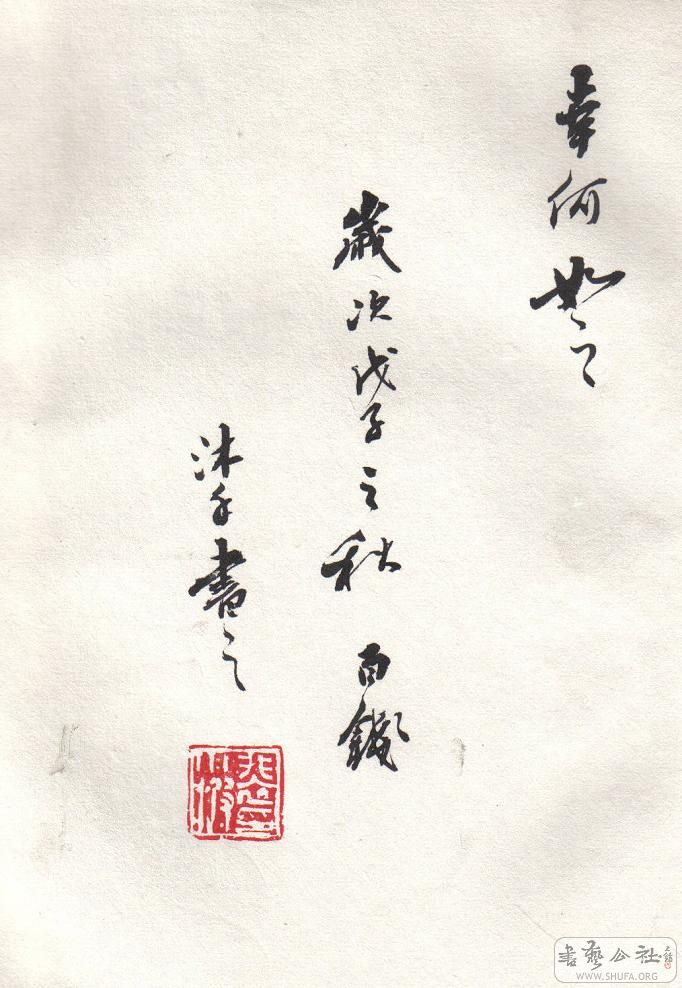 幸何如之
歲次戊子之秋 百鍼
沐手書之
書藝公社
WWW.SHUFA.ORG